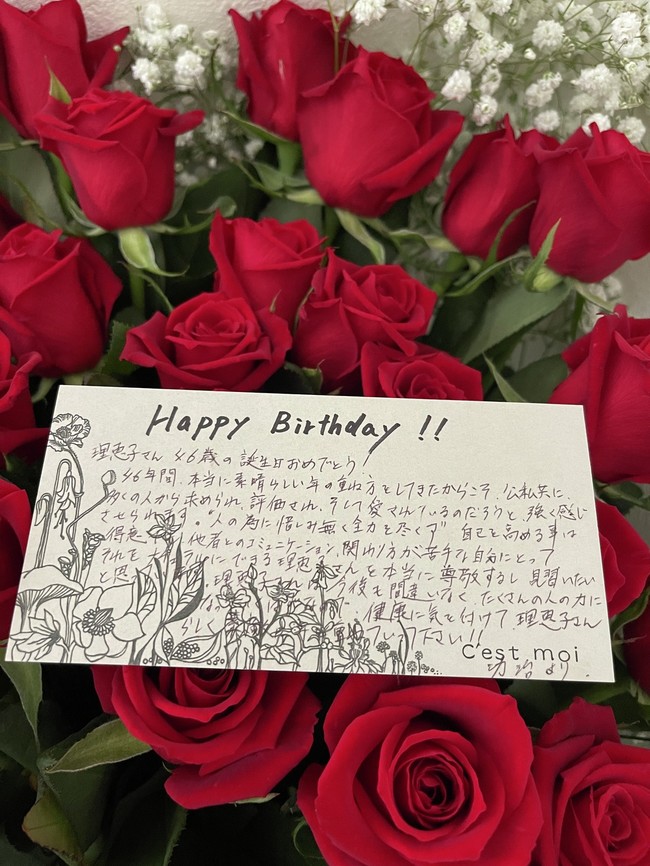 Happy Birthday !!
理恵子さん 46歳の誕生日おめでとう!
46年間、本当に素晴らしい年の重ね方をしてきたからこそ、公私共に、
多くの人から求められ、評価され、そして愛されているのだろうと、強く感じ
させられます。"人の為に惜しみ無く全力を尽くす" 自己を高める事は
得意 他者とのコミュニケーション、関わり方が苦手な自分にとって
それを にできる理恵子さんを本当に尊敬するし 見習いたい
と思 理恵子さん 後も間違いなく、たくさんの人の力に
健康に気を付けて 理恵子さん
らしく 下さい!!
C'est moi
より